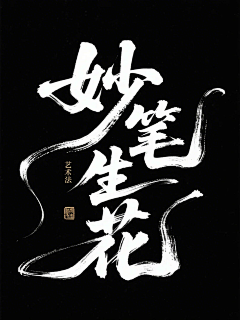 妙笔
生花
艺术法